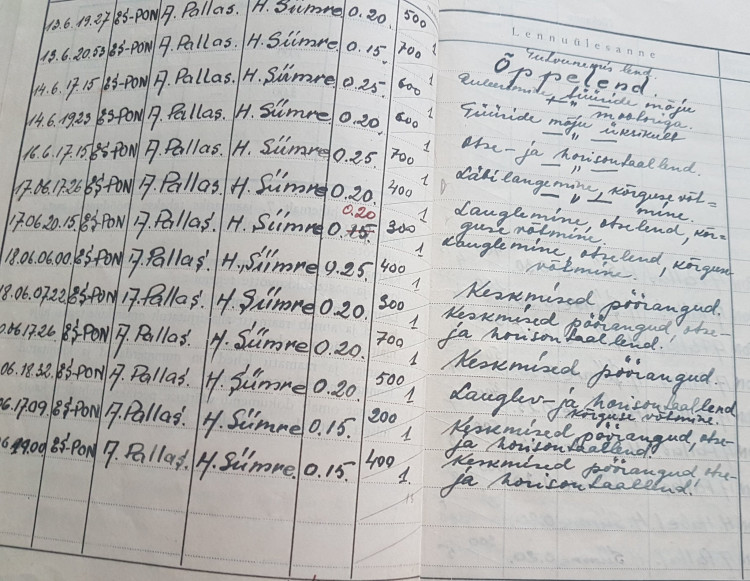 13.6.19.27 ES-PON A. Pallas. H. Siimre 0.20. 500 1
13.6.20.53 ES-PON A. Pallas. H. Siimre 0.15. 700 1
14.6.17.15 ES-PON A. Pallas. H. Siimre 0.25. 600 1
14.6.19.23 ES-PON A. Pallas. H. Siimre 0.20. 600 1
16.6.17.15 ES-PON A. Pallas. H. Siimre 0.25. 700 1
17.06.17.26 ES-PON A. Pallas. H. Siimre 0.20. 400 1
0.20
17.06.20.15 ES-PON A. Pallas. H. Siimre 0.15. 300 1
18.06.06.00 ES-PON A. Pallas. H. Siimre 0.25. 400 1
18.06.07.22 ES-PON A. Pallas. H. Siimre 0.20. 300 1
06.17.26 ES-PON A. Pallas. H. Siimre 0.20. 700 1
06.18.32 ES-PON A. Pallas. H. Siimre 0.20. 500 1
06.17.09. ES-PON A. Pallas. H. Siimre 0.15. 200 1
06 19.00 ES-PON A. Pallas. H. Siimre 0.15. 400 1
Lennuülesanne
Tutvunemis lend.
Õppelend.
tüüride mõju
mootoriga.
Tüüride mõju üksikult
Otse- ja horisontaallend.
Läbilangemine, kõrguse võt-
mine.
Lauglemine, otselend, kõr-
guse võtmine.
Lauglemine, otselend, kõrguse
võtmine.
Keskmised pöörangud.
Keskmised pöörangud, otse-
ja horisontaallend.
Keskmised pöörangud.
Lauglev- ja horisontaallend
kõrguse võtmine.
Keskmised pöörangud, otse-
ja horisontaallend.
Keskmised pöörangud otse-
ja horisontaallend.